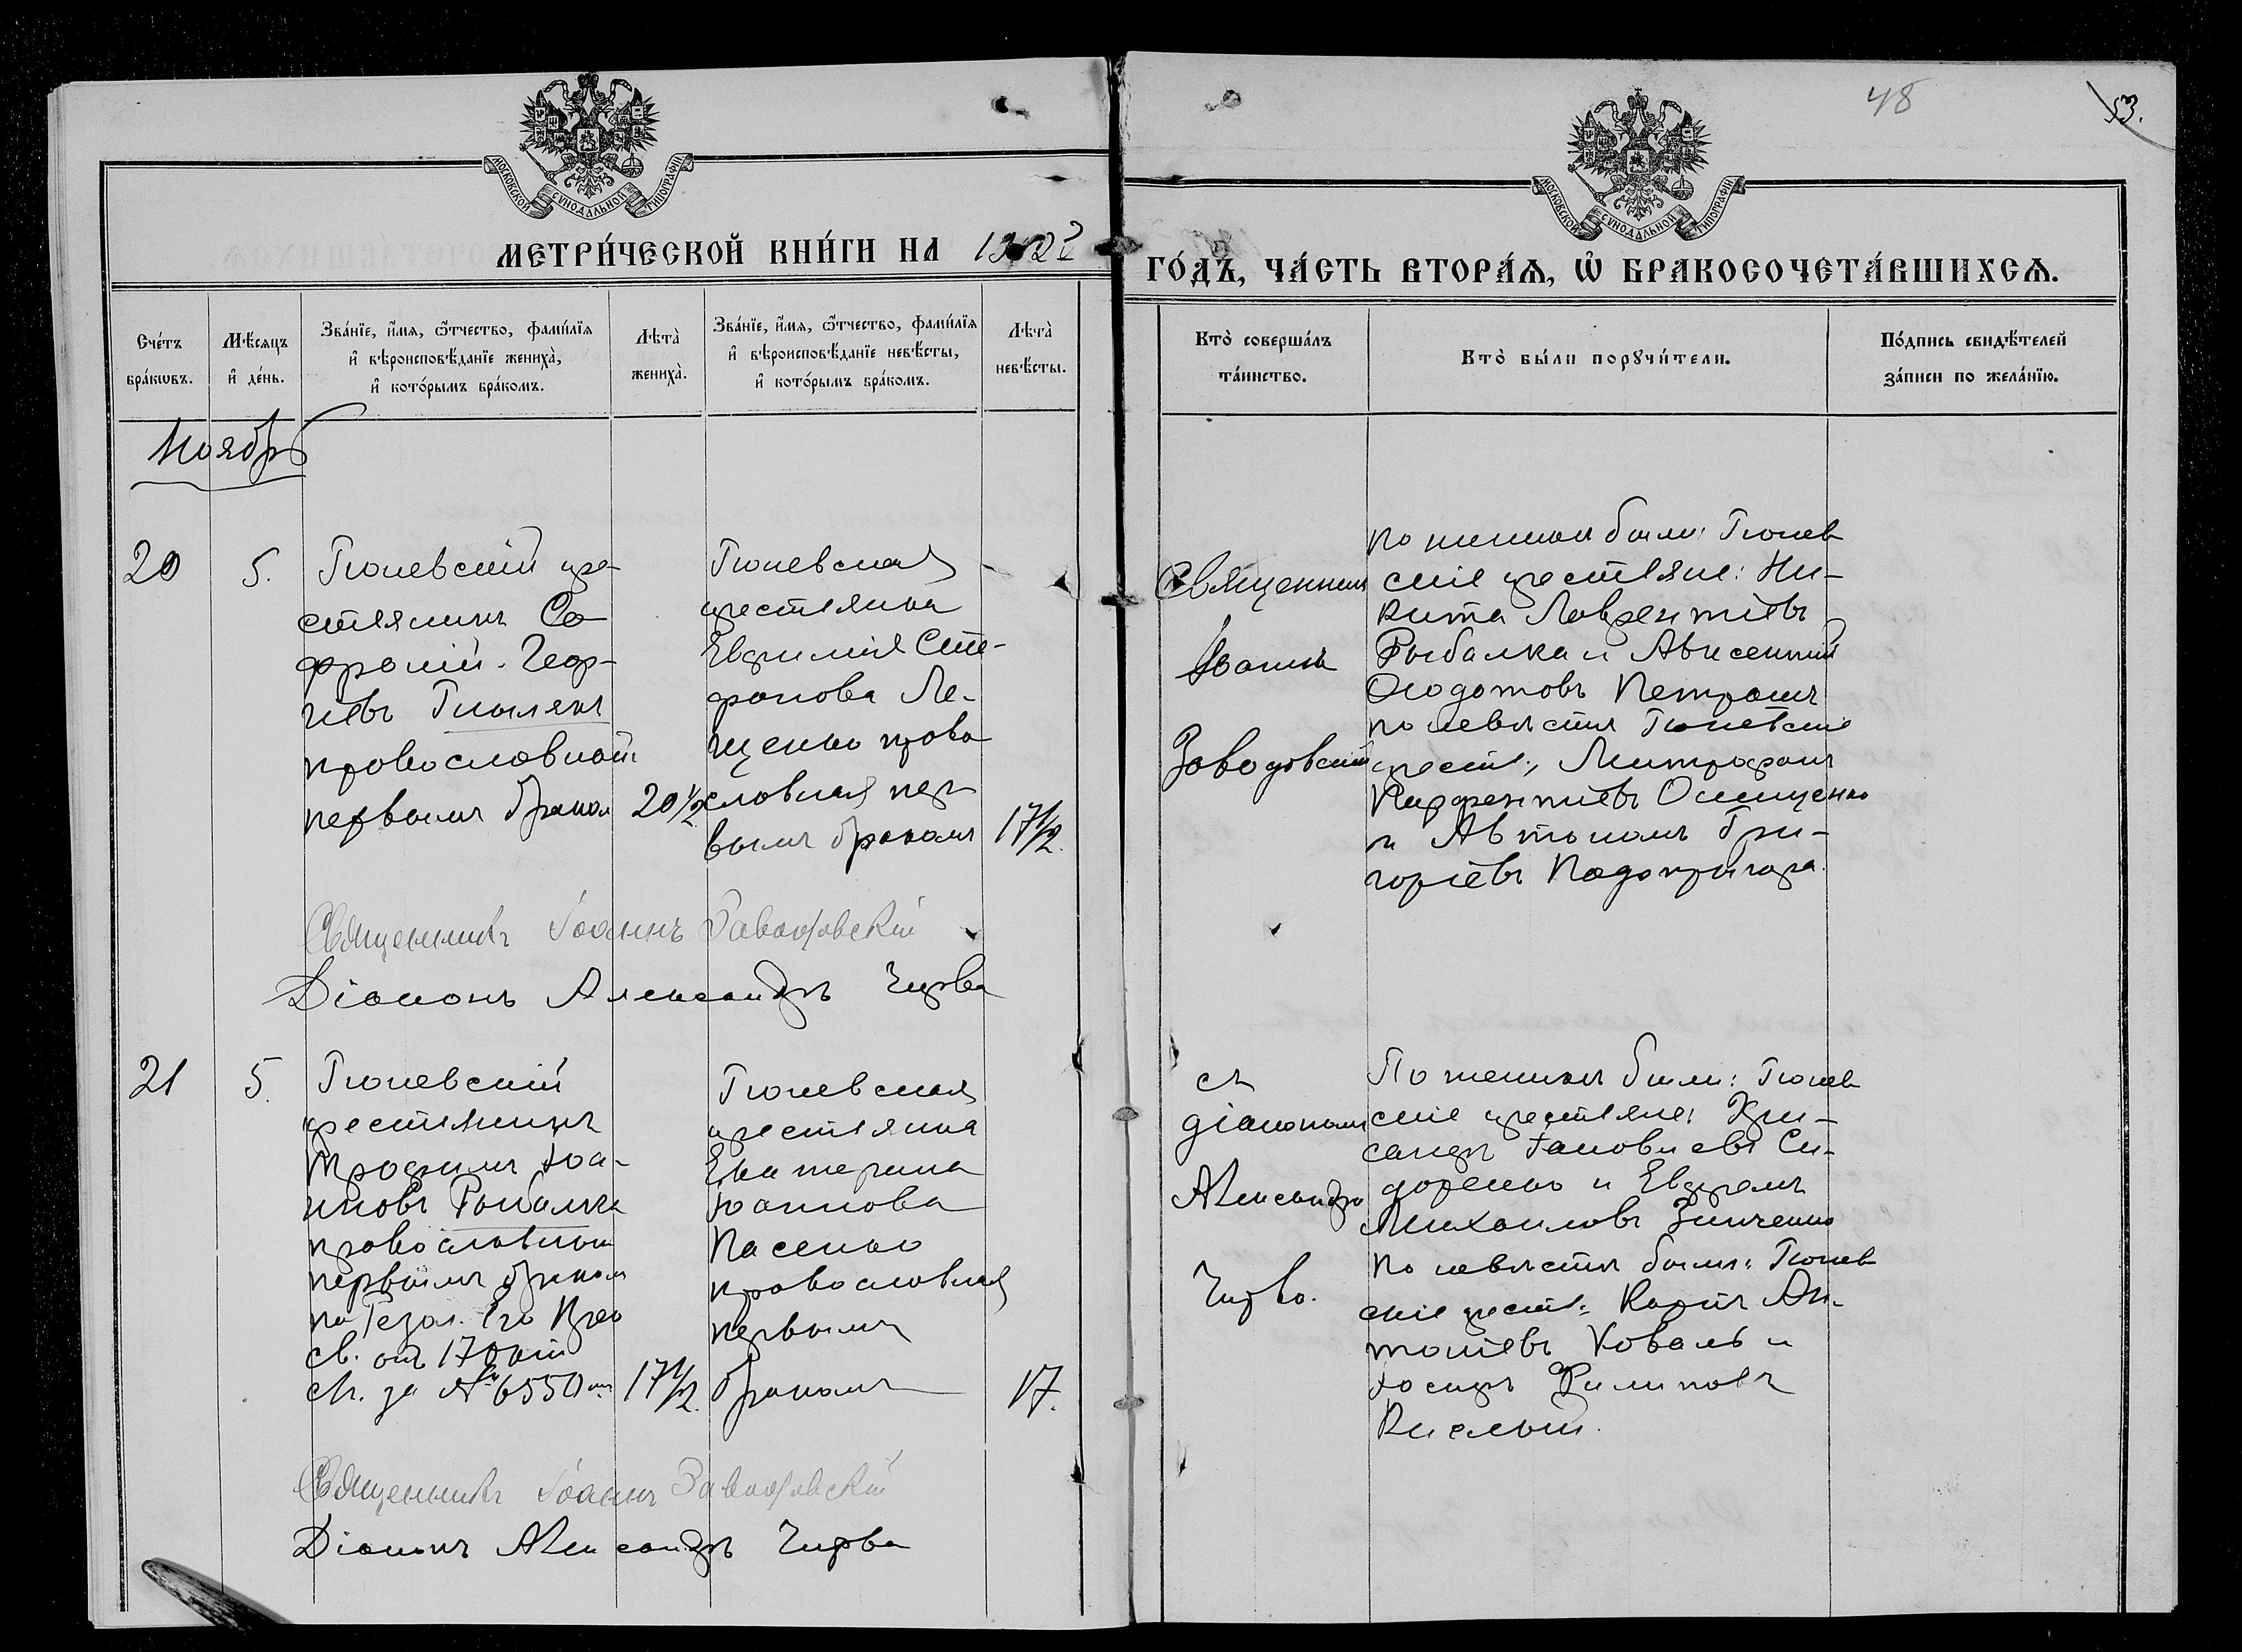 48
53.
МОСКОВСКОЙ СУНОДАЛЬНОЙ ТИПОГРАФІИ
МОСКОВСКОЙ СУНОДАЛЬНОЙ ТИПОГРАФІИ
МЕТРИ́ЧЕСКОЙ КНИ́ГИ НА 1922
ГО́ДЪ, ЧА́СТЬ ВТОРА́Ѧ, Ѽ БРАКОСОЧЕТА́ВШИХСѦ.
Сче́тъ бра́кѡвъ.
Мѣ́сяцъ и҆ де́нь.
Зва́нїе, и҆́мѧ, ѻ҆́тчество, фами́лїѧ и҆ вѣроисповѣ́данїе жениха̀, и҆ кото́рымъ бра́комъ.
Лѣта̀ жениха̀.
Зва́нїе, и҆́мѧ, ѻ҆́тчество, фами́лїѧ и҆ вѣроисповѣ́данїе невѣ́сты, и҆ кото́рымъ бра́комъ.
Лѣта̀ невѣ́сты.
Кто̀ соверша́лъ та́инство.
Кто̀ бы́ли порꙋчи́тели.
По́дпись свидѣ́телей за́писи по жела́нїю.
Ноябрь
20
5.
крестянинъ Со
фроній Геор-
гіевъ
православный
первымъ бракомъ
20 1/2
крестянка
Евфимія Сте-
фанова Ле-
щенко право
славная пер
вымъ бракомъ
17 1/2.
Священникъ
Іоаннъ
Заводовскій
По женихѣ были:
скіе крестяне: Ни-
кита Лаврентіевъ
Рыбалка и Авксентій
Ѳеодотовъ Петрашъ
по невѣстѣ
крест., Митрофанъ
Парфентіевъ Онищенко
и Автономъ Гри-
горіевъ Подопригора.
Священникъ Іоаннъ Заводовскій
Діаконъ Александръ Чирва
21
5.
крестянинъ
Трофимъ Іоа-
нновъ Рыбалка
православный
первымъ бракомъ
по резол. Его Прео
св. отъ 17 окт
с/г. за № 6550
17 1/2.
крестянка
Екатерина
Іоаннова
Пасенко
православная
первымъ
бракомъ
17.
съ
діакономъ
Александръ
Чирва.
По женихѣ были:
скіе крестяне: Хри-
санфъ Си-
доренко и Евфремъ
Михаиловъ Зинченко
По невѣстѣ были:
скіе крест: Карпъ Ан-
тоніевъ Коваль и
Іосифъ Филиповъ
Кислый.
Священникъ Іоаннъ Заводовскій
Діаконъ Александръ Чирва